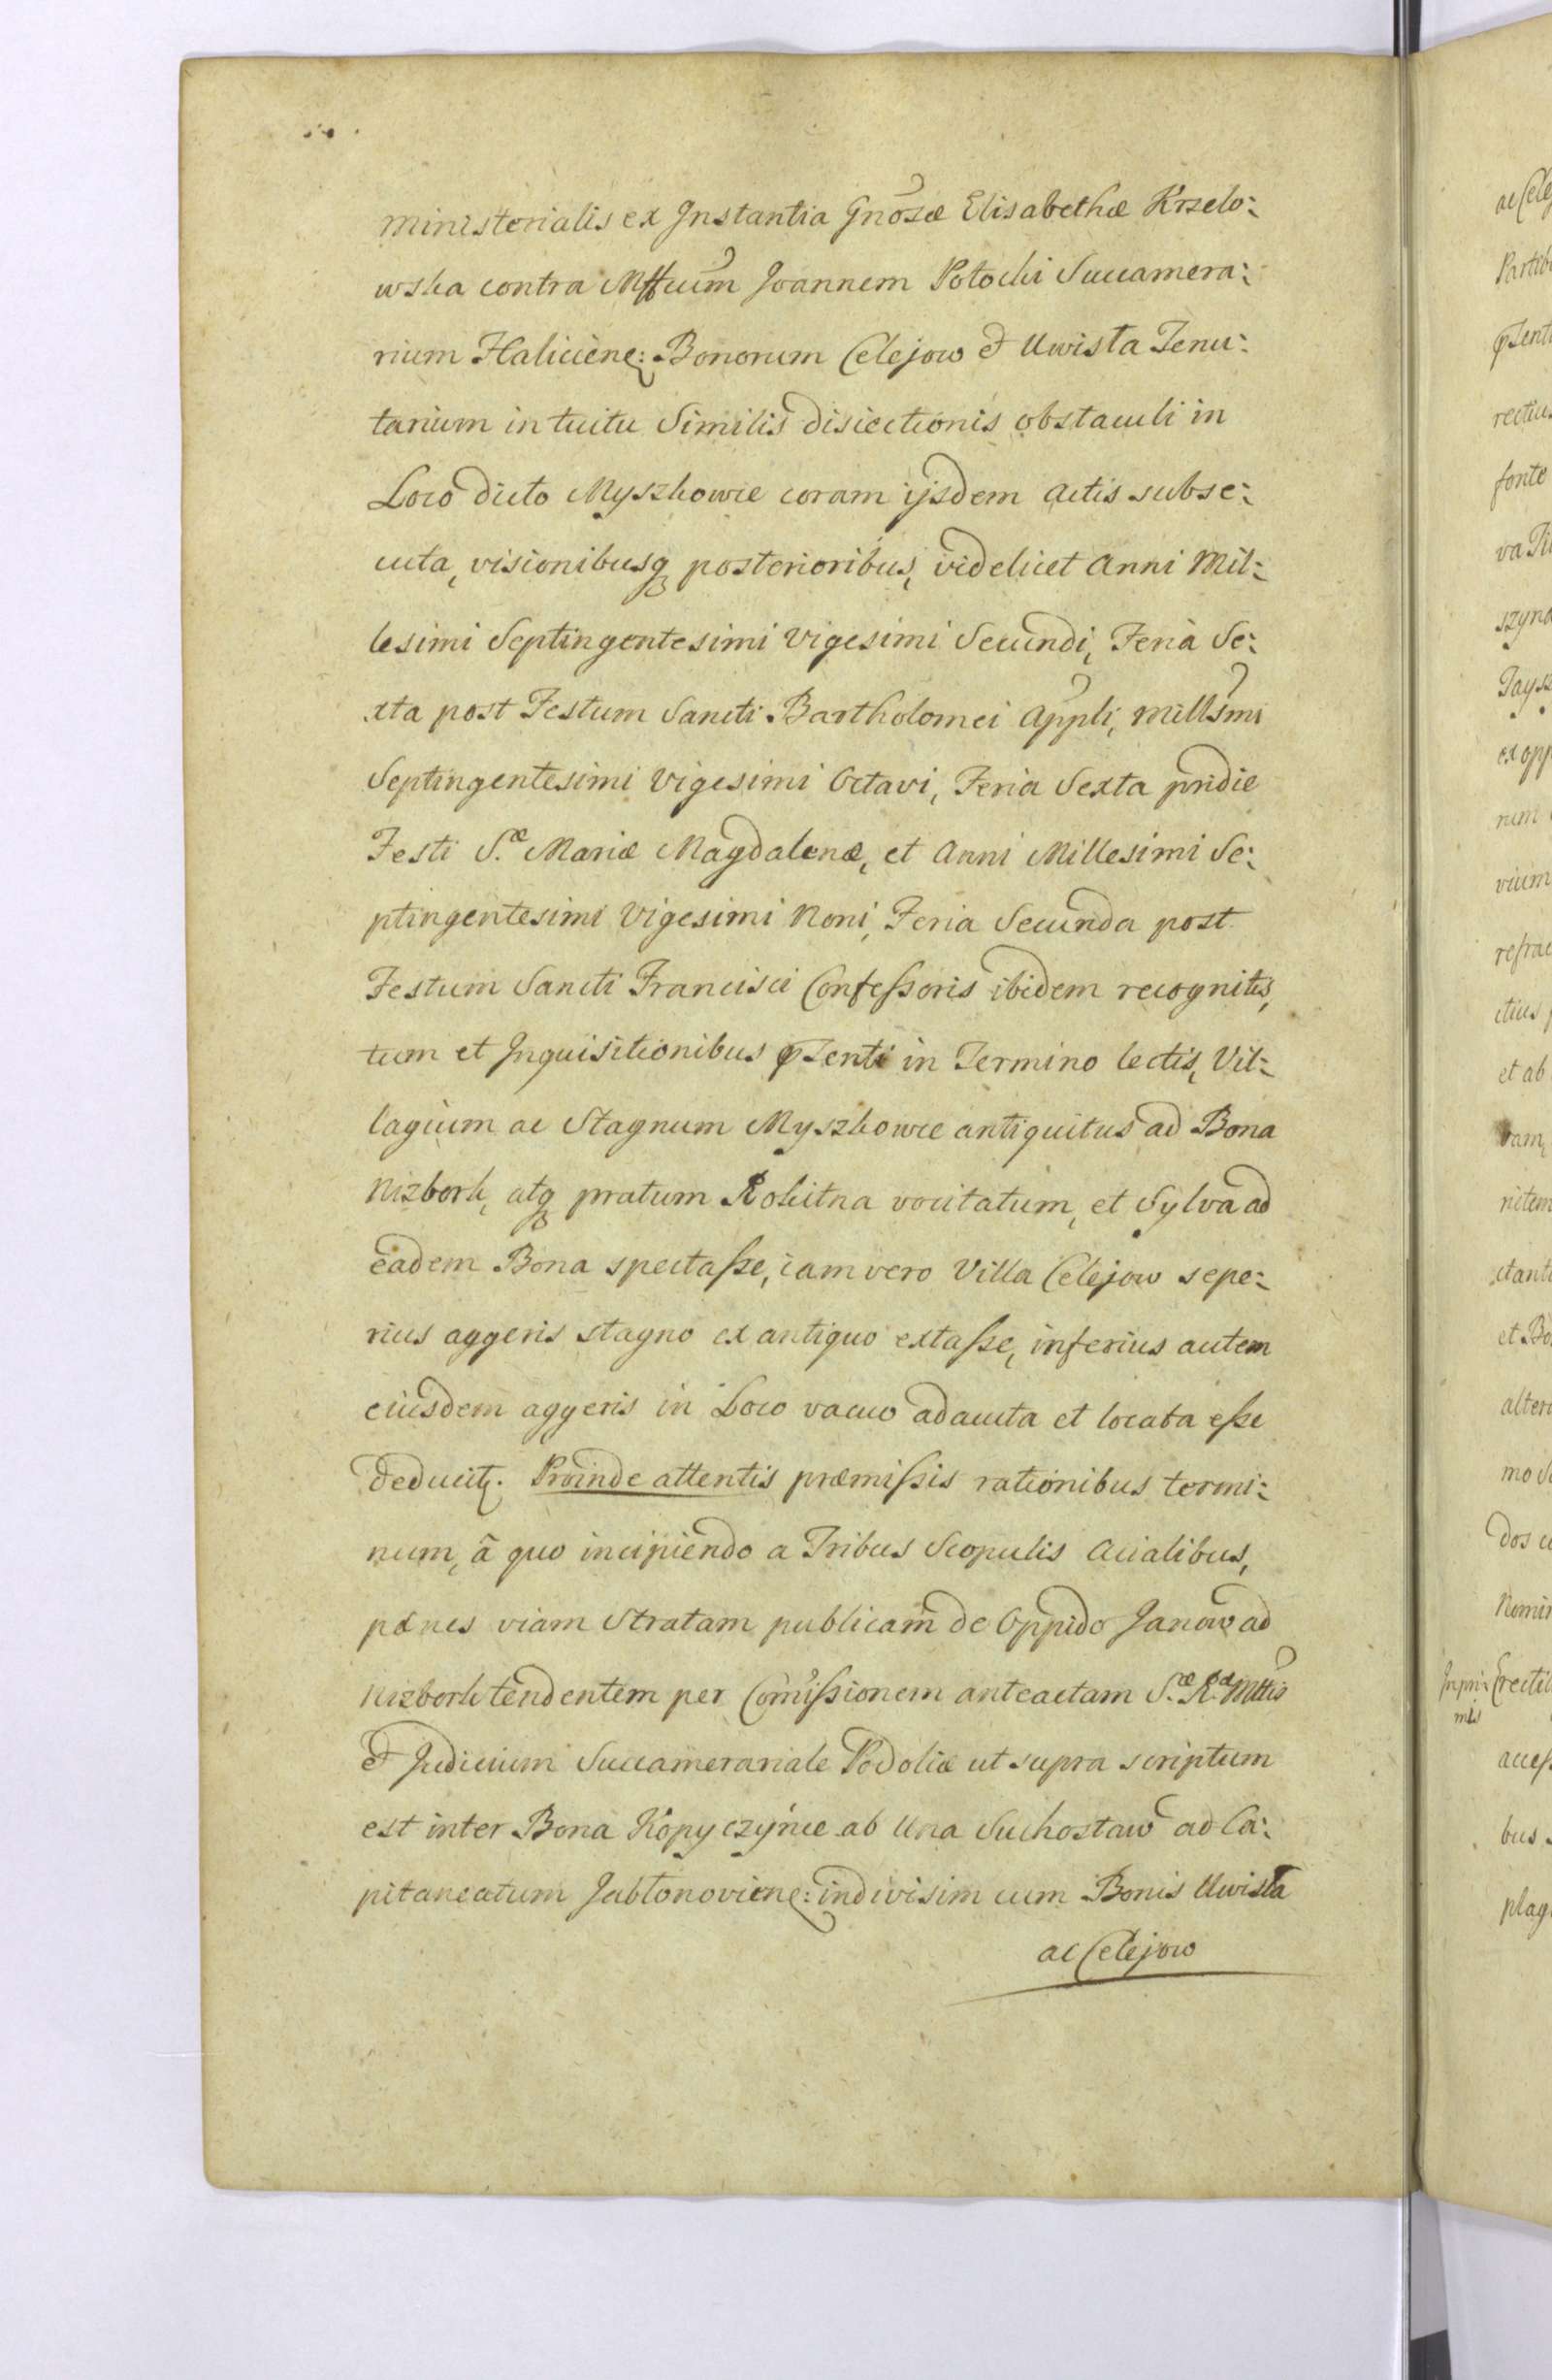 ministerialis ex Instantia Gnosæ Elisabethæ Krzelo:
wska contra Mffcum Joannem Potocki Succamera:
rium Haliciene: Bonorum Celejow et Uwista Tenu:
tarium intuitu Similis disiectionis obstaculi in
Loco dicto Myszkowce coram ijsdem actis subse:
cuta, visionibusq posterioribus, videlicet Anni Mil:
lesimi Septingentesimi vigesimi Secundi, Feria Se:
xta post Festum Sancti Bartholomei Appli, millsmi
Septingentesimi vigesimi Octavi, Feria Sexta pridie
Festi S.æ Mariæ Magdalenæ, et Anni Millesimi Se:
ptingentesimi Vigesimi Noni, Feria Secunda post
Festum Sancti Francisci Confessoris ibidem recognitis,
tum et Inquisitionibus pnti in Termino lectis, Vil:
lagium ac Stagnum Myszkowce antiquitus ad Bona
Nizbork, atq pratum Rokitna vocitatum, et Sylva ad
eadem Bona spectasse, iam vero Villa Celejow sepe:
rius aggeris stagno ex antiquo extasse, inferius autem
eiusdem aggeris in Loco vacuo adaucta et locata esse
deducitʒ. Proinde attentis præmissis rationibus termi:
num, â quo incipiendo a Tribus Scopulis Acialibus,
pænes viam Stratam publicam de Oppido Janow ad
Nizbork tendentem per Comissionem anteactam S.æ R.æ Mttis
et Judicium Succamerariale Podoliæ ut supra scriptum
est inter Bona Kopyczynce ab Una Suchostaw ad Ca:
pitaneatum Jabłonoviene: indivisim cum Bonis Uwista
ac Celejow